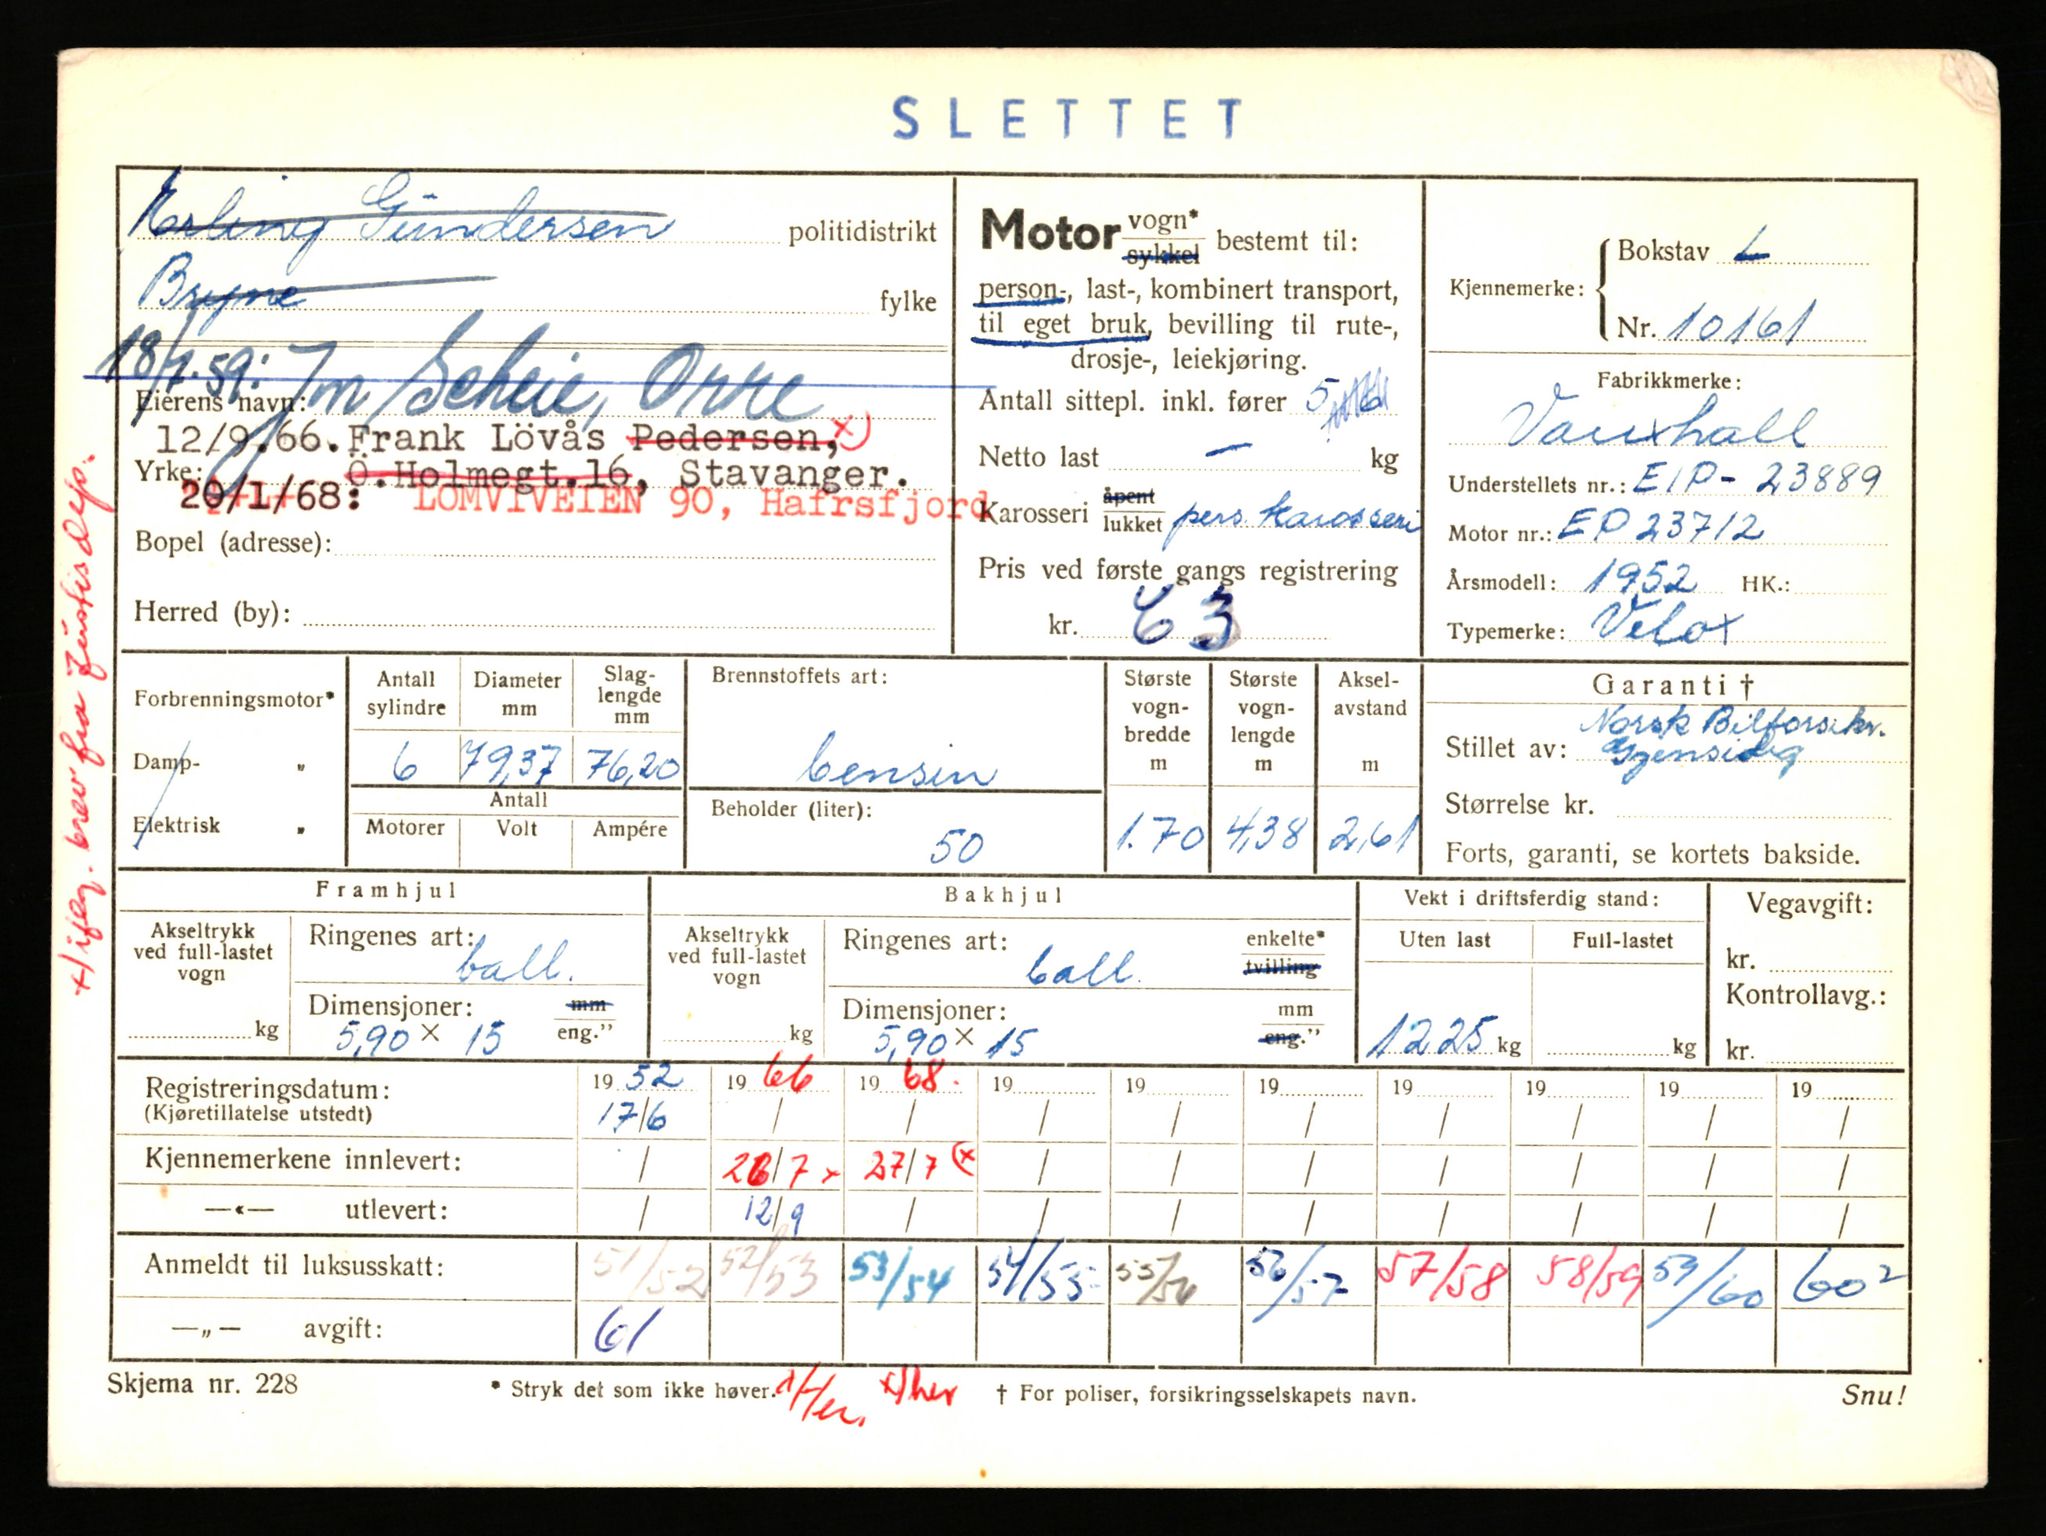 SLETTET
Erling Gundersen politidistrikt
Bryne fylke
18/7.59: Jn Scheie, Orre
Eierens navn:
12/9.66. Frank Lövås Pedersen, x)
Yrke: Ö.Holmegt.16, Stavanger.
20/1/68: LOMVIVEIEN 90, Hafrsfjord
Bopel (adresse):
Herred (by):
x) ifølg. brev fra Justisdep.
Motor vogn* sykkel bestemt til:
person-, last-, kombinert transport,
til eget bruk, bevilling til rute-,
drosje-, leiekjøring.
Antall sittepl. inkl. fører 5
Netto last — kg
Karosseri åpent lukket pers karosseri
Pris ved første gangs registrering
kr. 63
Kjennemerke: Bokstav L
Nr. 10161
Fabrikkmerke:
Vauxhall
Understellets nr.: EIP- 23889
Motor nr.: EP 23712
Årsmodell: 1952 HK.:
Typemerke: Velox
Forbrenningsmotor*
Damp- "
Elektrisk "
Antall sylindre
Diameter mm
Slag-lengde mm
6 79,37 76,20
Antall
Motorer Volt Ampére
Brennstoffets art:
bensin
Beholder (liter):
50
Største vogn-bredde m
1.70
Største vogn-lengde m
4,38
Aksel-avstand m
2,61
Garanti †
Stillet av: Norsk Bilforsikr.
Gjensidig
Størrelse kr.
Forts, garanti, se kortets bakside.
Framhjul
Akseltrykk ved full-lastet vogn
kg
Ringenes art: ball.
Dimensjoner: mm
5,90 x 15 eng."
Bakhjul
Akseltrykk ved full-lastet vogn
kg
Ringenes art: ball. enkelte* tvilling
Dimensjoner: mm
5,90 x 15 eng."
Vekt i driftsferdig stand:
Uten last Full-lastet
1225 kg kg
Vegavgift:
kr.
Kontrollavg.:
kr.
Registreringsdatum: 19 52 19 66 19 68. 19 19 19 19 19 19 19
(Kjøretillatelse utstedt) 17/6 / / / / / / / / /
Kjennemerkene innlevert: / 26/7 x 27/7 (x / / / / / / /
—«— utlevert: / 12/9 / / / / / / / /
Anmeldt til luksusskatt: 51/52 52/53 53/54 54/55 55/56 56/57 57/58 58/59 59/60 60²
—„— avgift: 61
Skjema nr. 228
* Stryk det som ikke høver.
x) her
† For poliser, forsikringsselskapets navn.
Snu!